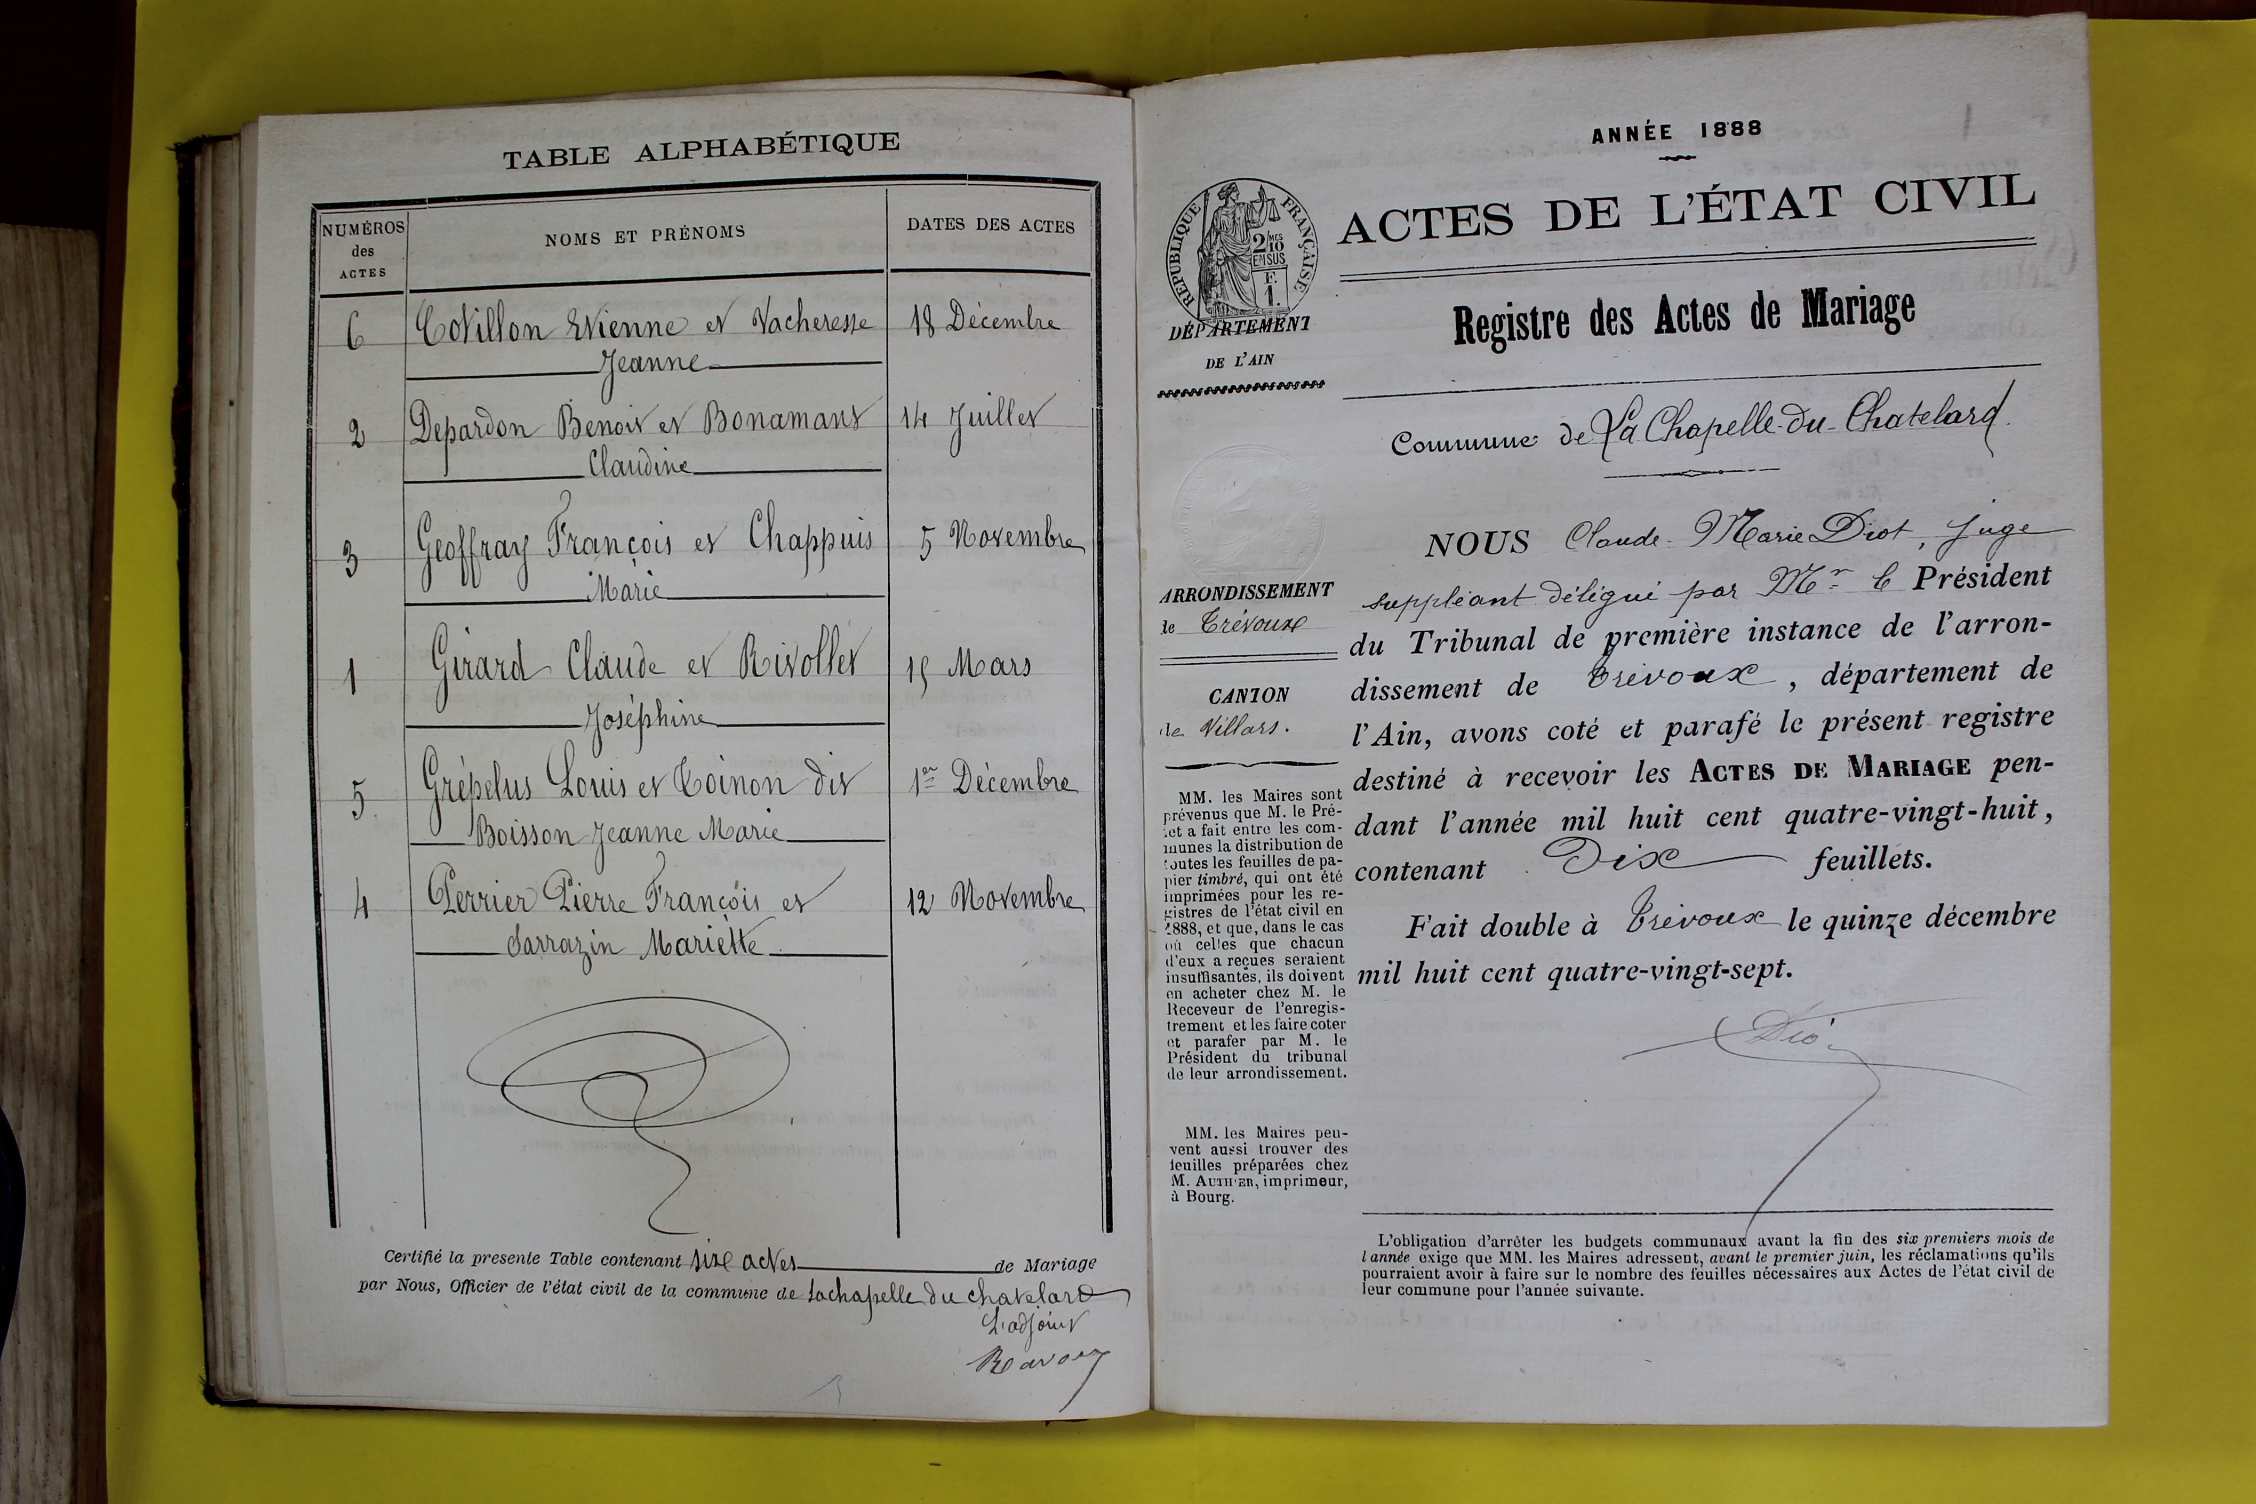 TABLE ALPHABÉTIQUE
NUMÉROS
des
ACTES
NOMS ET PRÉNOMS
DATES DES ACTES
6 Cotillon Etienne et Vacheresse 18 Décembre
Jeanne
2 Depardon Benoit et Bonamant 14 Juillet
Claudine
3 Geoffray François et Chappuis 5 Novembre
Marie
1 Girard Claude et Rivollet 15 Mars
Joséphine
5 Grépelus Louis et Coinon dit 1er Décembre
Boisson Jeanne Marie
4 Perrier Pierre François et 12 Novembre
Sarrazin Mariette
Certifié la presente Table contenant six actes de Mariage
par Nous, Officier de l'état civil de la commune de Lachapelle du chatelard
L'adjoint
Ravoux
1
ANNÉE 1888
RÉPUBLIQUE FRANÇAISE
2/10 MES
EN SUS
F.
1.
DÉPARTEMENT
DE L'AIN
ARRONDISSEMENT
de Trévoux
CANTON
de Villars.
MM. les Maires sont
prévenus que M. le Pré-
fet a fait entre les com-
munes la distribution de
toutes les feuilles de pa-
pier timbré, qui ont été
imprimées pour les re-
gistres de l'état civil en
1888, et que, dans le cas
où celles que chacun
d'eux a reçues seraient
insuffisantes, ils doivent
en acheter chez M. le
Receveur de l'enregis-
trement et les faire coter
et parafer par M. le
Président du tribunal
de leur arrondissement.
MM. les Maires peu-
vent aussi trouver des
feuilles préparées chez
M. AUTHIER, imprimeur,
à Bourg.
ACTES DE L'ÉTAT CIVIL
Registre des Actes de Mariage
Commune de La Chapelle-du-Chatelard.
NOUS Claude-Marie Diot, Juge
suppléant délégué par Mr le Président
du Tribunal de première instance de l'arron-
dissement de Trévoux, département de
l'Ain, avons coté et parafé le présent registre
destiné à recevoir les ACTES DE MARIAGE pen-
dant l'année mil huit cent quatre-vingt-huit,
contenant Dix feuillets.
Fait double à Trévoux le quinze décembre
mil huit cent quatre-vingt-sept.
Diot
L'obligation d'arrêter les budgets communaux avant la fin des six premiers mois de
l'année exige que MM. les Maires adressent, avant le premier juin, les réclamations qu'ils
pourraient avoir à faire sur le nombre des feuilles nécessaires aux Actes de l'état civil de
leur commune pour l'année suivante.